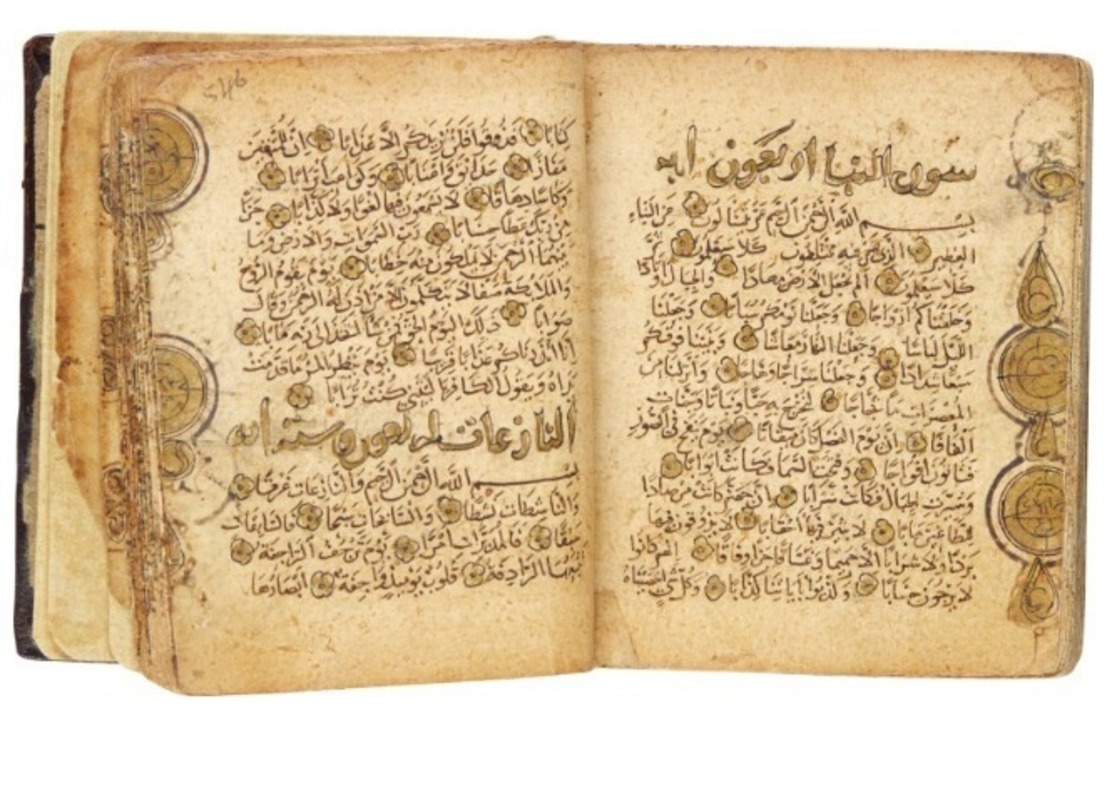 سورة النبا اربعون ايه
بسم الله الرحمن الرحيم عم يتسالون عن النباء
العظيم الذي هم فيه مختلفون كلا سيعلمون ثم
كلا سيعلمون الم نجعل الارض مهادا والجبال اوتادا
وخلقناكم ازواجا وجعلنا نومكم سباتا وجعلنا
الليل لباسا وجعلنا النهار معاشا وبنينا فوقكم
سبعا شدادا وجعلنا سراجا وهاجا وانزلنا من
المعصرات ما ثجاجا لنخرج به حبا ونباتا وجنات
الفافا ان يوم الفصل كان ميقاتا يوم ينفخ في الصور
فتاتون افواجا وفتحت السما فكانت ابوابا
وسيرت الجبال فكانت سرابا ان جهنم كانت مرصادا
للطاغين مابا لابثين فيها احقابا لا يذوقون فيها
بردا ولا شرابا الا حميما وغساقا جزا وفاقا انهم كانوا
لا يرجون حسابا وكذبوا باياتنا كذابا وكل شي احصيناه
546
كتابا فذوقوا فلن نزيدكم الا عذابا ان للمتقين
مفازا حدائق واعنابا وكواعب اترابا
وكاسا دهاقا لا يسمعون فيها لغوا ولا كذابا جزا
من ربك عطا حسابا رب السموات والارض وما
بينهما الرحمن لا يملكون منه خطابا يوم يقوم الروح
والملائكة صفا لا يتكلمون الا من اذن له الرحمن وقال
صوابا ذلك اليوم الحق فمن شا اتخذ الى ربه مابا
انا انذرناكم عذابا قريبا يوم ينظر المرء ما قدمت
يداه ويقول الكافر يا ليتني كنت ترابا
النازعات اربعون وست ايه
بسم الله الرحمن الرحيم والنازعات غرقا
والناشطات نشطا والسابحات سبحا فالسابقات
سبقا فالمدبرات امرا يوم ترجف الراجفة
تتبعها الرادفة قلوب يومئذ واجفة ابصارها